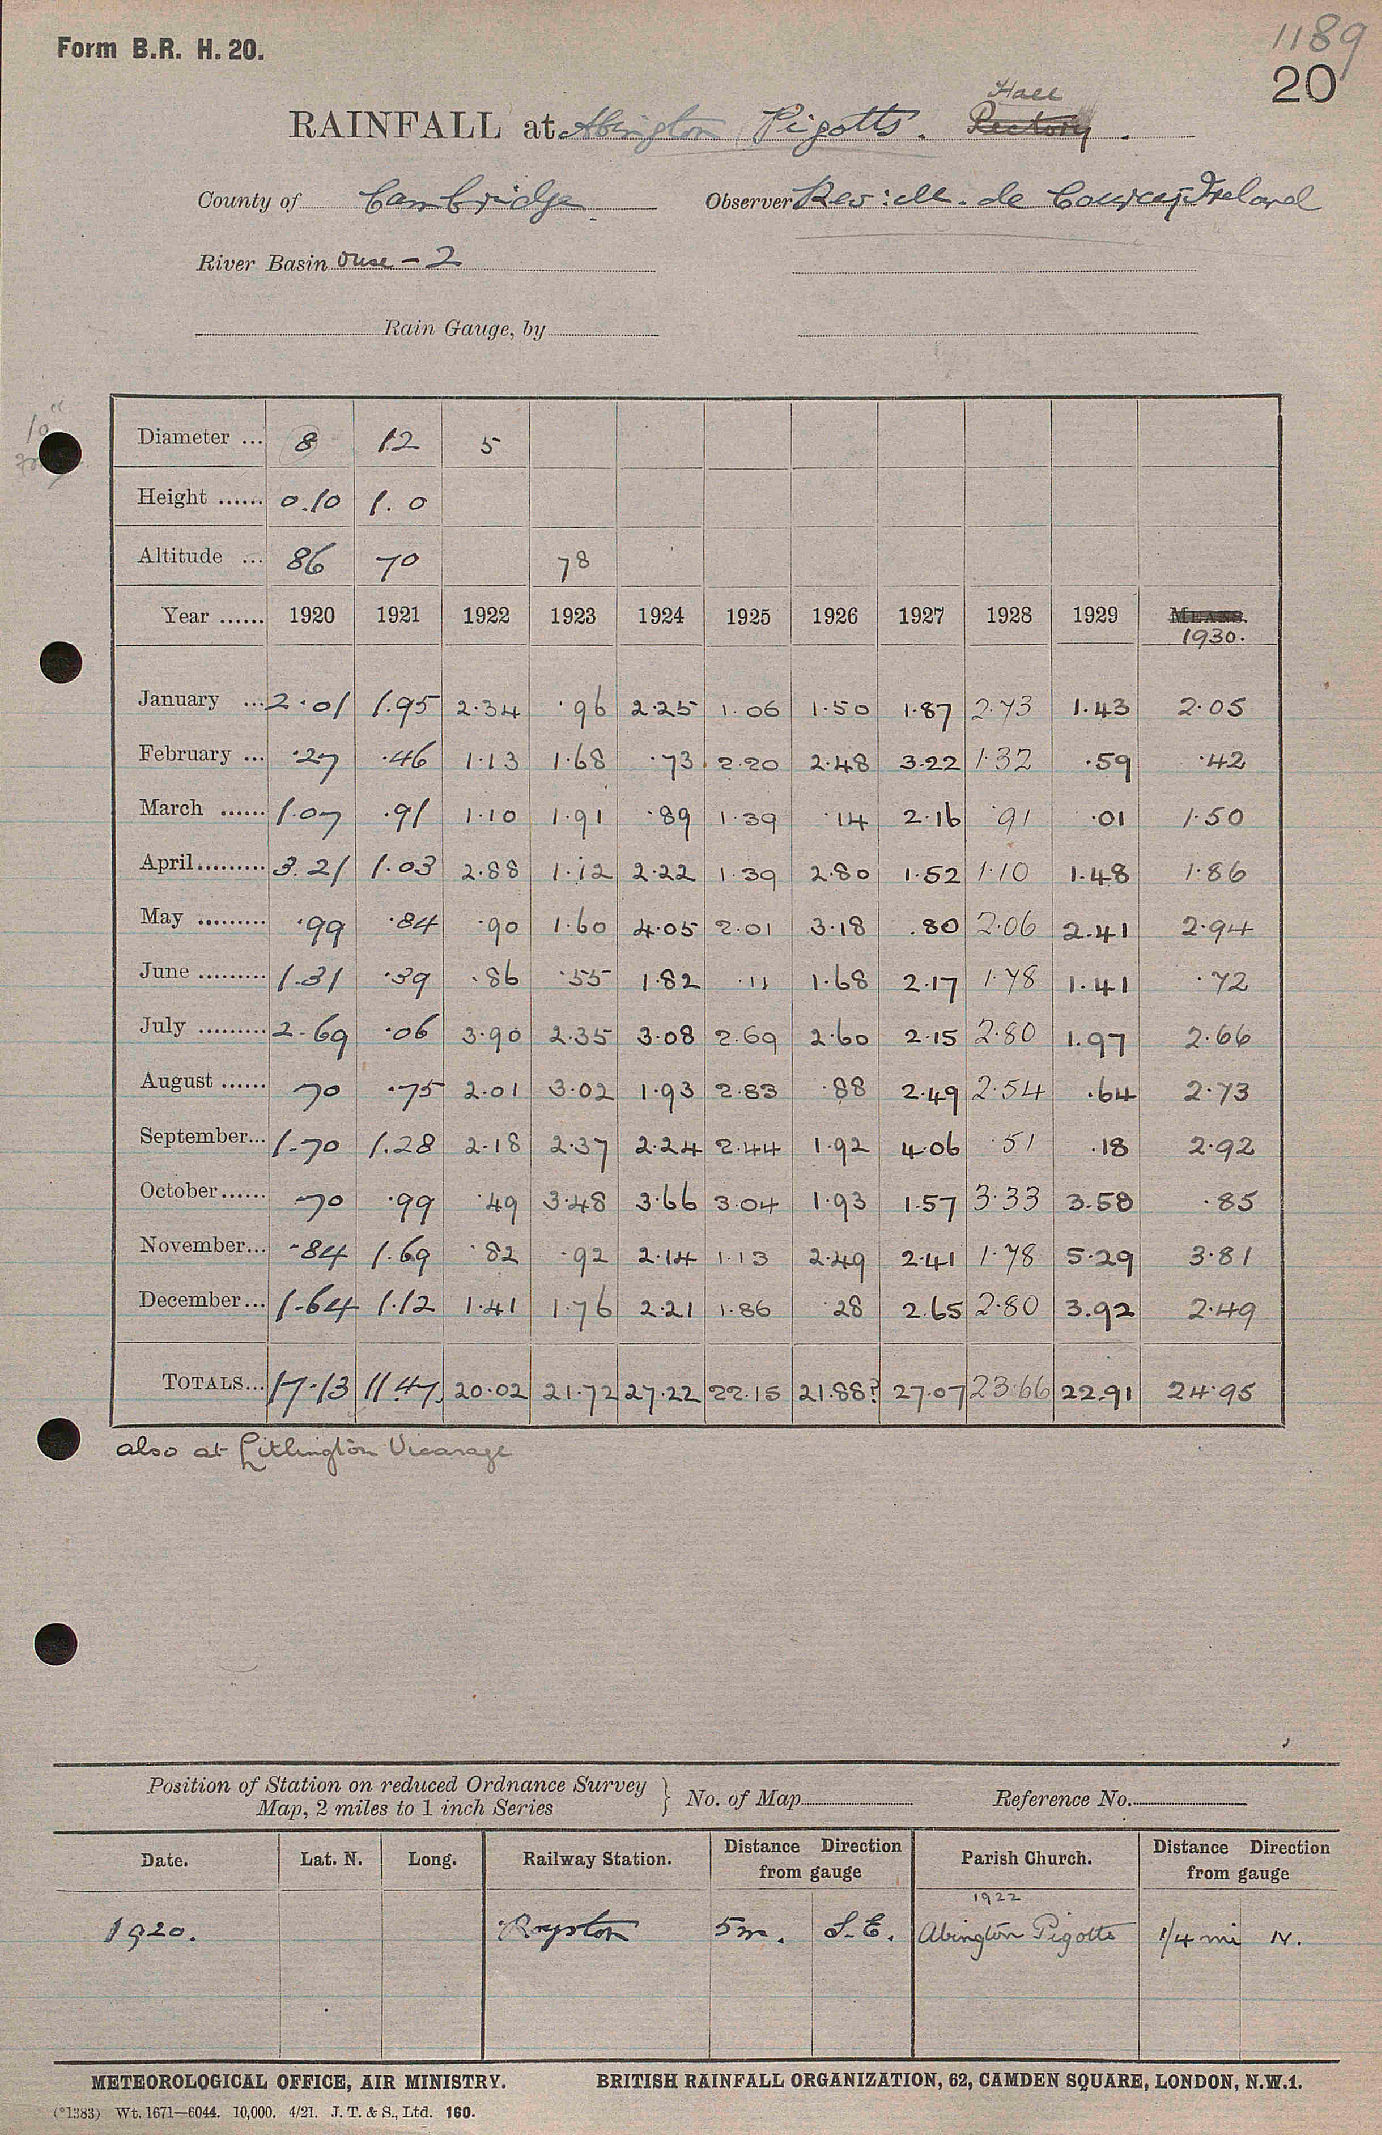 1189
Form B.R. H. 20.
20
Hall
RAINFALL at Abington Pigotts. Rectory.
County of Cambridge Observer Rev: M. de Courcy Ireland
River Basin Ouse - 2
Rain Gauge, by
10"
Diameter ... 8 12 5
Height ...... 0.10 1.0
Altitude ... 86 70 78
Year ...... 1920 1921 1922 1923 1924 1925 1926 1927 1928 1929 MEANS.
1930.
January ... 2.01 1.95 2.34 .96 2.25 1.06 1.50 1.87 2.73 1.43 2.05
February ... .27 .46 1.13 1.68 .73 2.20 2.48 3.22 1.32 .59 .42
March ...... 1.07 .91 1.10 1.91 .89 1.39 .14 2.16 .91 .01 1.50
April ......... 3.21 1.03 2.88 1.12 2.22 1.39 2.80 1.52 1.10 1.48 1.86
May ......... .99 .84 .90 1.60 4.05 2.01 3.18 .80 2.06 2.41 2.94
June ......... 1.31 .39 .86 .55 1.82 .11 1.68 2.17 1.78 1.41 .72
July ......... 2.69 .06 3.90 2.35 3.08 2.69 2.60 2.15 2.80 1.97 2.66
August ...... 70 .75 2.01 3.02 1.93 2.83 .88 2.49 2.54 .64 2.73
September... 1.70 1.28 2.18 2.37 2.24 2.44 1.92 4.06 .51 .18 2.92
October ...... 70 .99 .49 3.48 3.66 3.04 1.93 1.57 3.33 3.58 .85
November... .84 1.69 .82 .92 2.14 1.13 2.49 2.41 1.78 5.29 3.81
December... 1.64 1.12 1.41 1.76 2.21 1.86 .28 2.65 2.80 3.92 2.49
TOTALS... 17.13 11.47 20.02 21.72 27.22 22.15 21.88? 27.07 23.66 22.91 24.95
also at Litlington Vicarage
Position of Station on reduced Ordnance Survey
Map, 2 miles to 1 inch Series } No. of Map Reference No.
Date. Lat. N. Long. Railway Station. Distance Direction from gauge Parish Church. Distance Direction from gauge
1922
1920. Royston 5m. S.E. Abington Pigotts 1/4 mi N.
METEOROLOGICAL OFFICE, AIR MINISTRY. BRITISH RAINFALL ORGANIZATION, 62, CAMDEN SQUARE, LONDON, N.W.1.
(*1383) Wt. 1671—6044. 10,000. 4/21. J. T. & S., Ltd. 160.